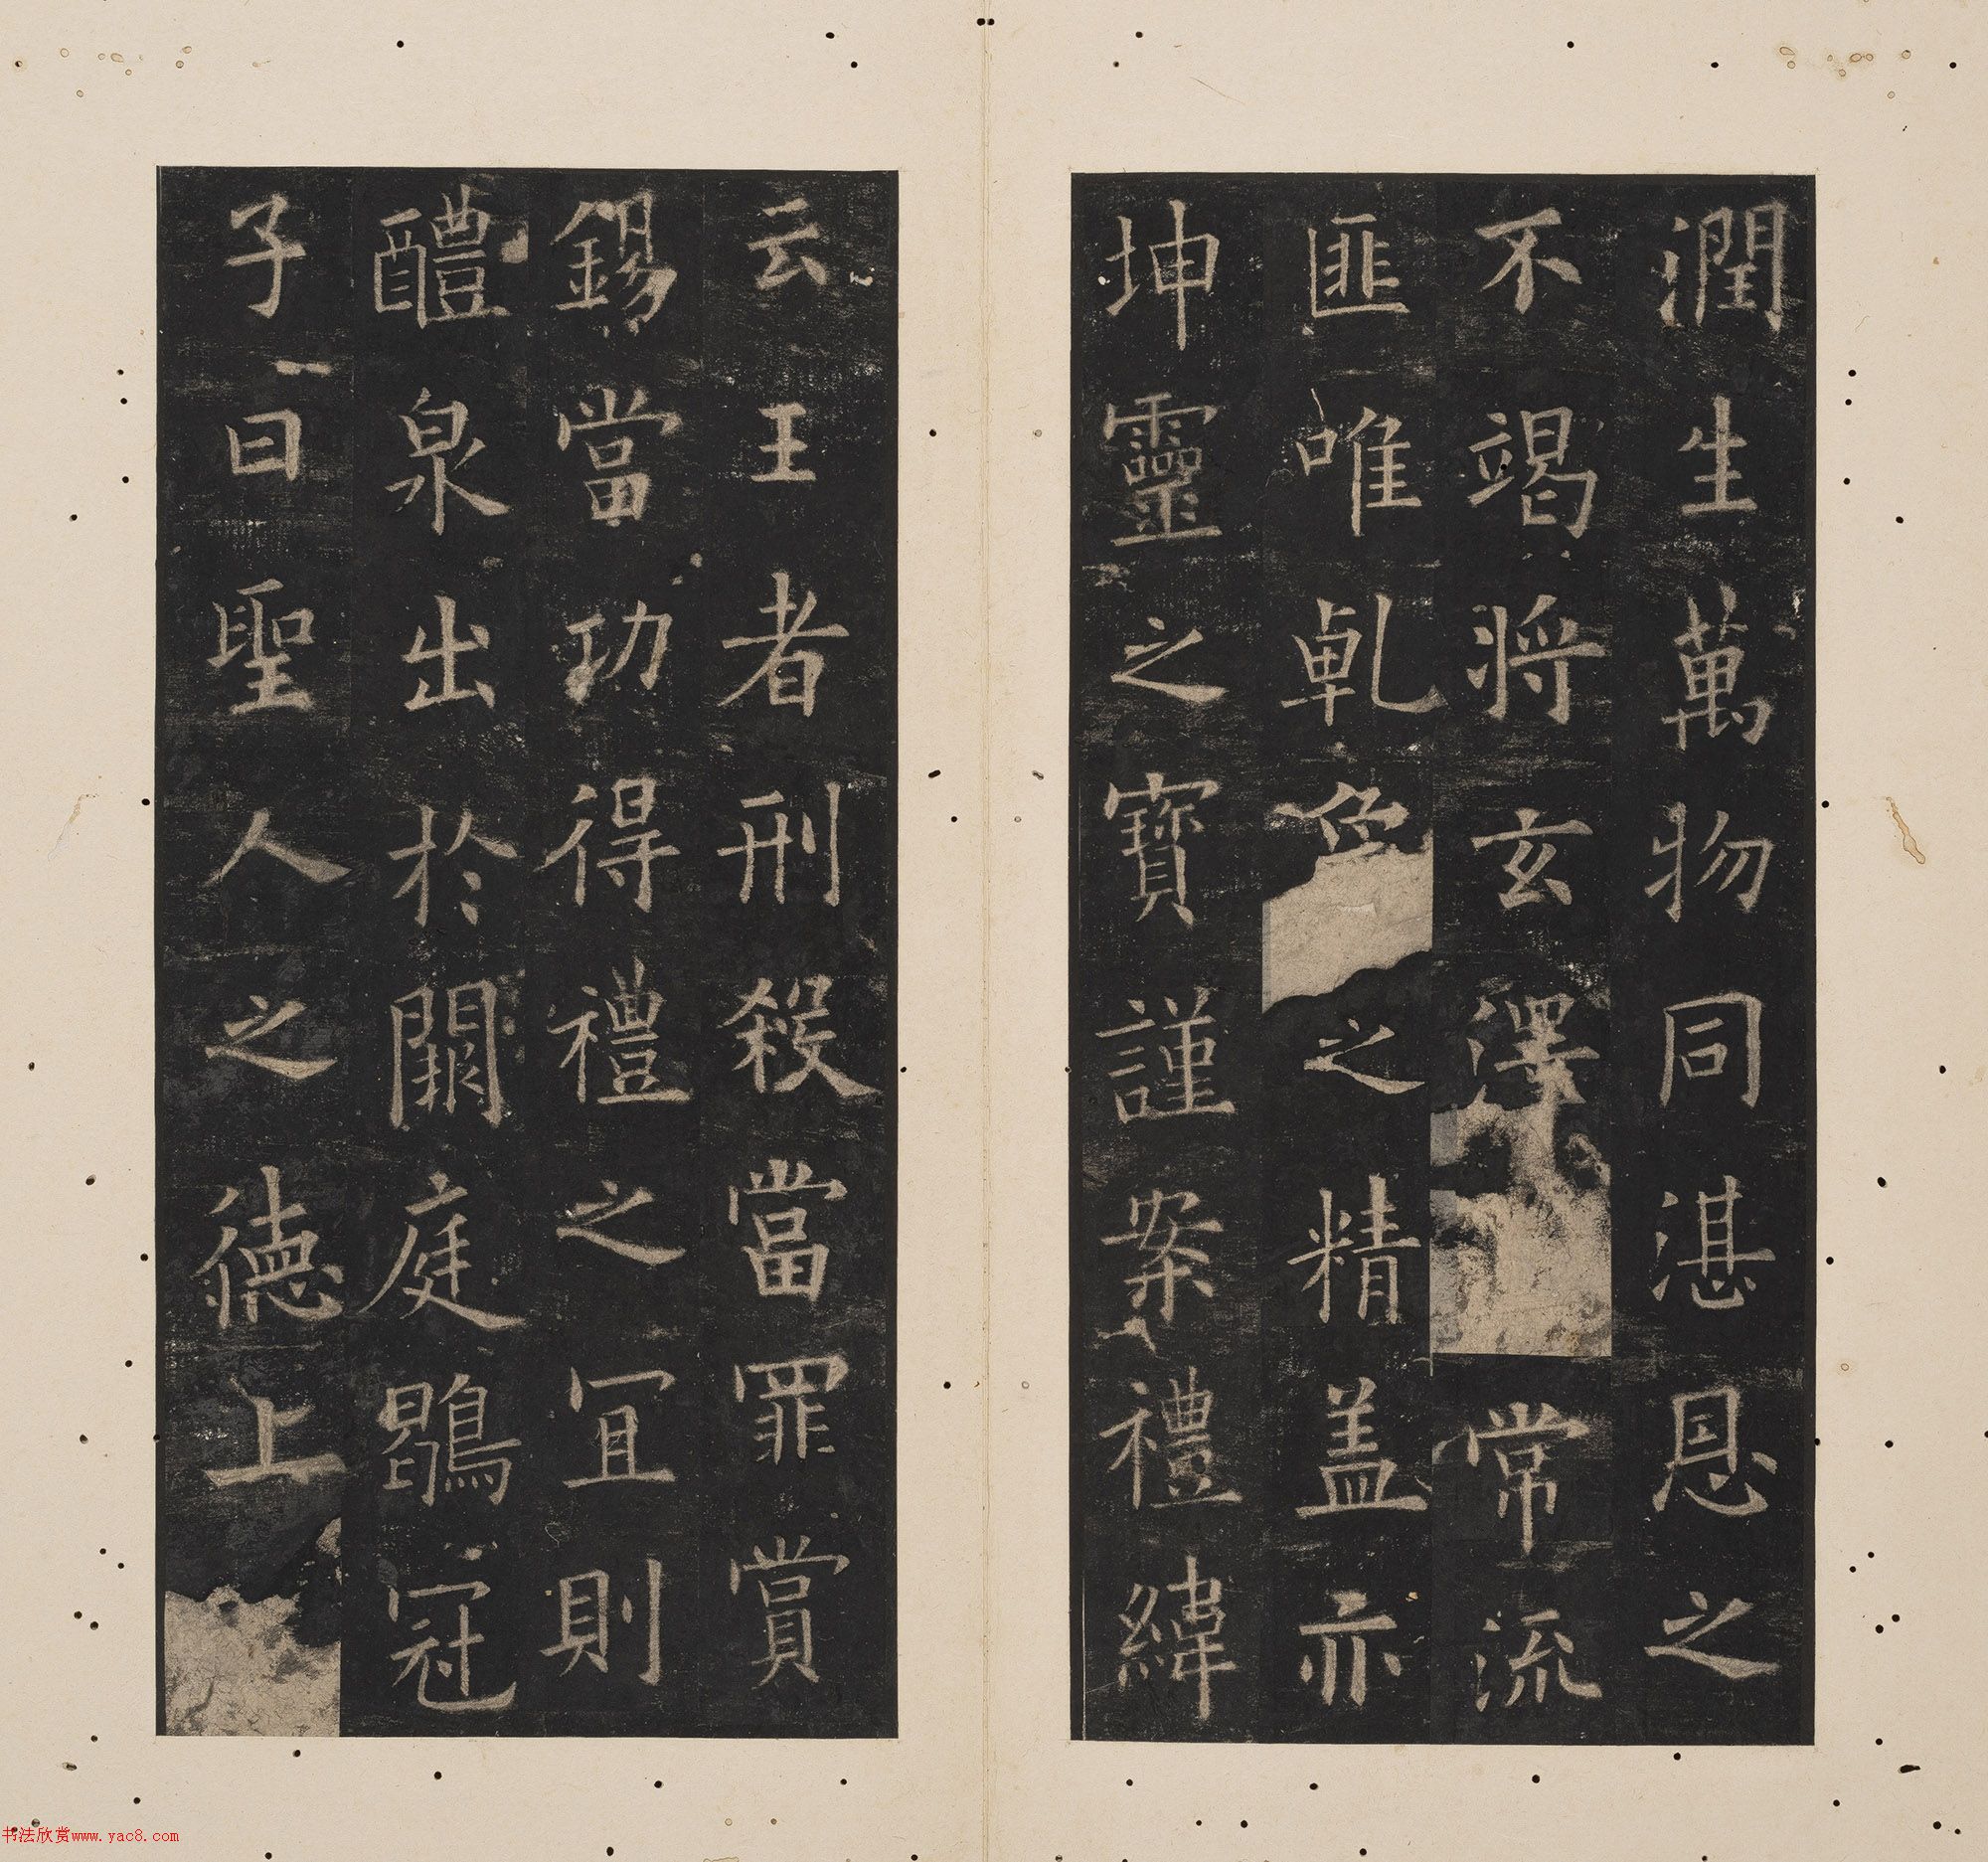 潤生萬物同湛恩之
不竭將玄澤常流
匪唯乹之精盖亦
坤靈之寶謹案禮緯
云王者刑殺當罪賞
錫當功得禮之宜則
醴泉出於闕庭鶡冠
子曰聖人之德上
书法欣赏www.yac8.com